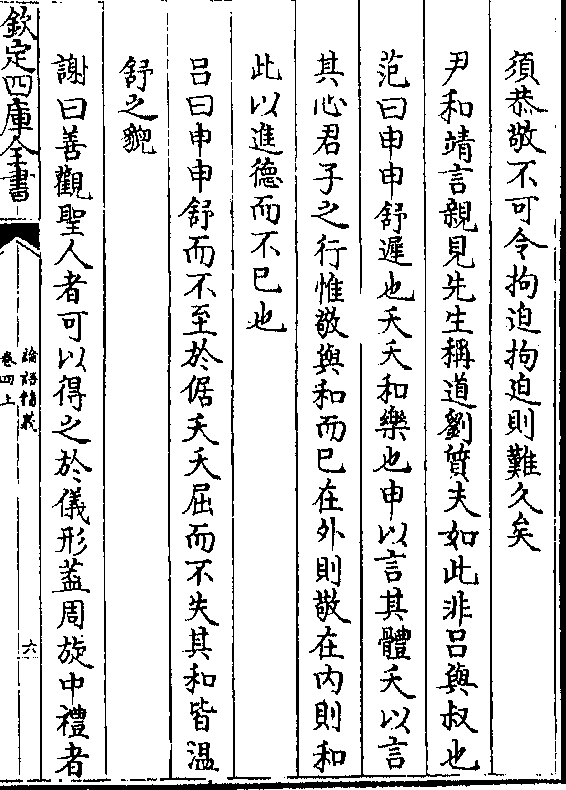 須恭敬不可令拘迫拘迫則難久矣
尹和靖言親見先生稱道劉質夫如此非呂與叔也
范曰申申舒遲也夭夭和樂也申以言其體夭以言
其心君子之行惟敬與和而已在外則敬在内則和
此以進德而不已也
呂曰申申舒而不至於倨夭夭屈而不失其和皆温
舒之貌
謝曰善觀聖人者可以得之於儀形蓋周旋中禮者
欽定四庫全書
論語精義
卷四上
六